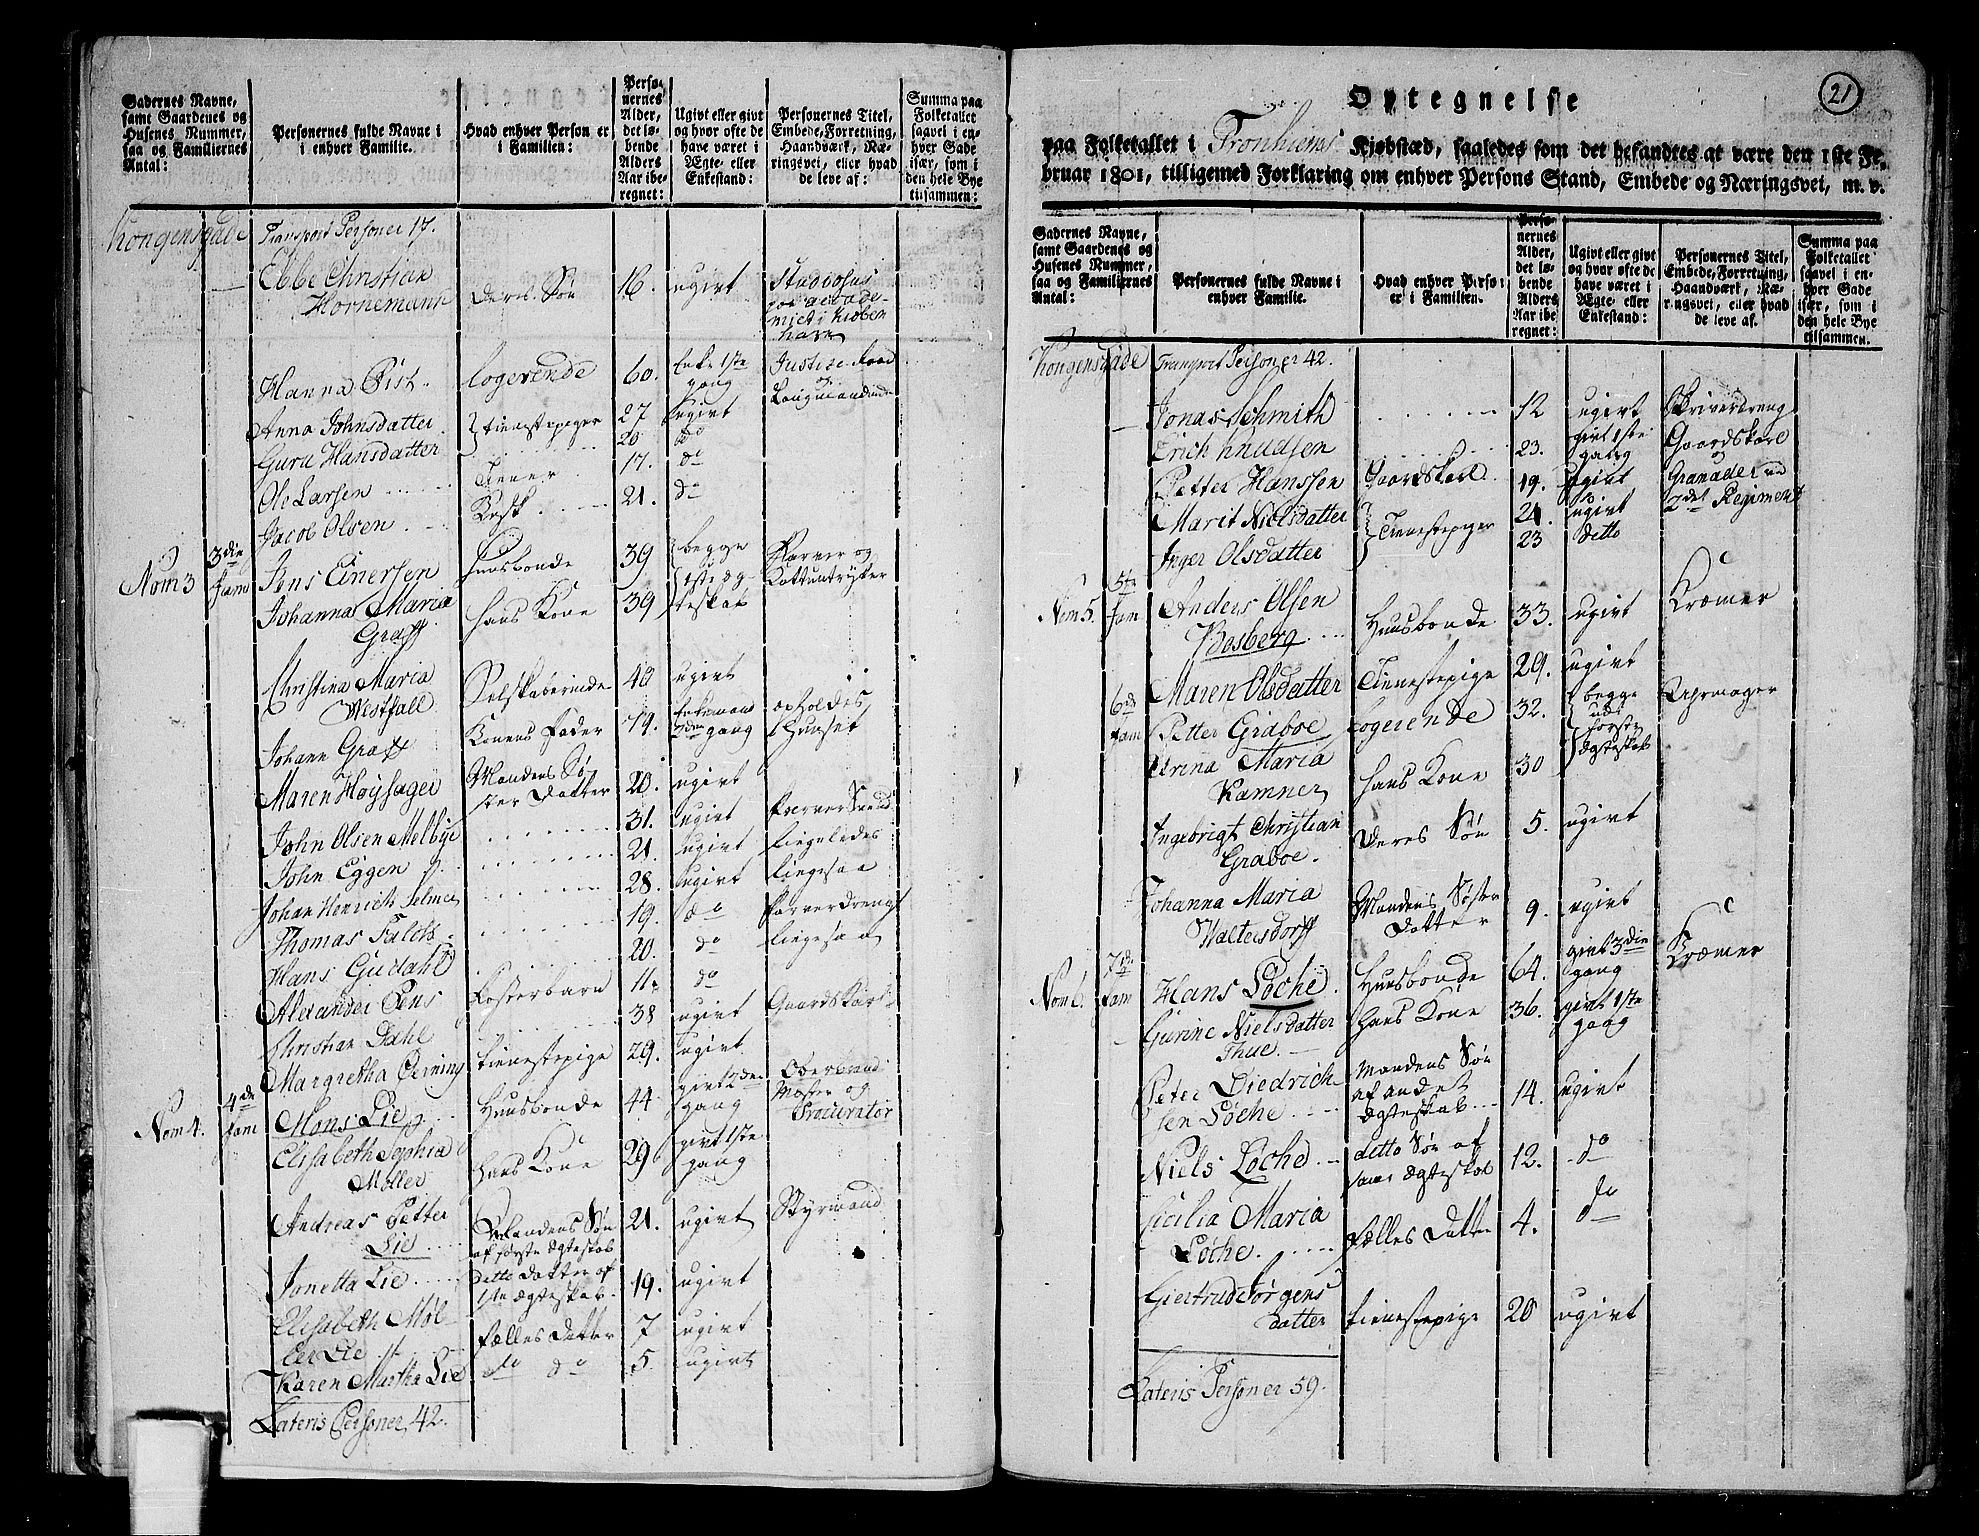 Gadernes Navne,
samt Gaardenes og
Husenes Nummer,
saa og Familiernes
Antal:
Personernes fulde Navne i
i enhver Familie.
Hvad enhver Person er
i Familien:
Perso-
nernes
Alder,
det lø-
bende
Alders
Aar ibe-
regnet:
Ugivt eller givt
og hvor ofte de
have været i
Ægte- eller
Enkestand:
Personernes Titel,
Embede, Forretning,
Haandværk, Næ-
ringsvei, eller hvad
de leve af:
Summa paa
Folketallet
saavel i en-
hver Gade
især, som i
den hele Bye
tilsammen:
Kongensgade Transport Personer 17.
Ebbe Christian
Hornemann Deres Søn 16. ugivt Studiosus
ved acade-
miet i Kiøben
havn
Hanna Pist. logerende 60. Enke 1ste
gang Justice Raad
og
Laugmandinde
Anna Johnsdatter tienestepiger 27 ugivt
Guru Hansdatter 20 do
Ole Larsen Tiener 17. do
Jacob Olsen Kusk 21. do
Nom 3 3die
fam Jens Einersen Huusbonde 39 begge
1ste æg-
teskab Farver og
Kattuntrykker
Johanna Maria
Graff hans Kone 39
Christina Maria
Westfall Selskaberinde 48 ugivt
Johann Graff Konens Fader 79. Enkemand
2den gang opholdes
i Huuset
Maren Høysager Mandens Sø-
ster Datter 20. ugivt
John Olsen Melbye 31. ugivt Farver Svend
John Eggen 21. ugivt ligeledes
Johan Henrich Selmer 28. ugivt ligesaa
Thomas Falch 19. do Farverdreng
Hans Gudahl 20. do ligesaa
Alexander Jens Fosterbarn 11. do
Christian Dahl 38 ugivt Gaardskarl
Margretha Bening tienestepige 29. ugivt
Nom 4. 4de
fam Mons Lie Huusbonde 44 givt 2den
gang Oberbrand
Mester og
Procurator
Elisabeth Sophia
Møller hans Kone 29 givt 1ste
gang
Andreas Petter
Lie Mandens Søn
af første Ægteskab 21. ugivt Styrmand
Janetta Lie ditto datter af
1ste Ægteskab. 19. ugivt
Elisabeth Møl-
ler Lie fælles Datter 7 ugivt
Karen Martha Lie do do 5. ugivt
Lateris Personer 42.
21
Optegnelse
paa Folketallet i Tronhiems Kjøbstæd, saaledes som det befandtes at være den 1ste Fe-
bruar 1801, tilligemed Forklaring om enhver Persons Stand, Embede og Næringsvei, m. v.
Gadernes Navne,
samt Gaardenes og
Husenes Nummer,
saa og Familiernes
Antal:
Personernes fulde Navne i
enhver Familie.
Hvad enhver Person
er i Familien.
Perso-
nernes
Alder,
det lø-
bende
Alders
Aar ibe-
regnet:
Ugivt eller givt
og hvor ofte de
have været i
Ægte- eller
Enkestand:
Personernes Titel,
Embede, Forretning,
Haandværk, Næ-
ringsvei, eller hvad
de leve af.
Summa paa
Folketallet
saavel i en-
hver Gade
især, som i
den hele Bye
tilsammen.
Kongensgade Transport Personer 42.
Jonas Schmith 12 ugivt Skriverdreng
Erich Knudsen 23. givt 1ste
gang Gaardskarl
og
Petter Hanssen Gaardskarl 19. ugivt Granadeer ve
2det Regiment
Marit Nielsdatter Tienestepiger 21. ugivt
Inger Olsdatter 23 ditto
Nom 5. 5te
fam Anders Olsen
Bosberg Huusbonde 33. ugivt Kræmer
Maren Olsdatter Tienestepige 29. ugivt
6te
fam Petter Graboe logerende 32. begge
udi
første
Ægteskab Uhrmager
Maria
Kamner hans Kone 30
Ingebrigt Christian
Graboe. Deres Søn 5. ugivt
Johanna Maria
Waltersdorff Mandens Søster
Datter 9. ugivt
Nom 6. 7de
fam Hans Løche Huusbonde 64. givt 3die
gang Kræmer
Gurine Nielsdatter
Thue hans Kone 36. givt 1ste
gang
Peter Diedrich
sen Løche Mandens Søn
af andet
Ægteskab 14. ugivt
Niels Løche ditto Søn af
samme Ægteskab 12. do
Sicilia Maria
Løche. fælles Datter 4. do
Giertrud Jørgens
datter tienestepige 20 ugivt
Lateris Personer 59.